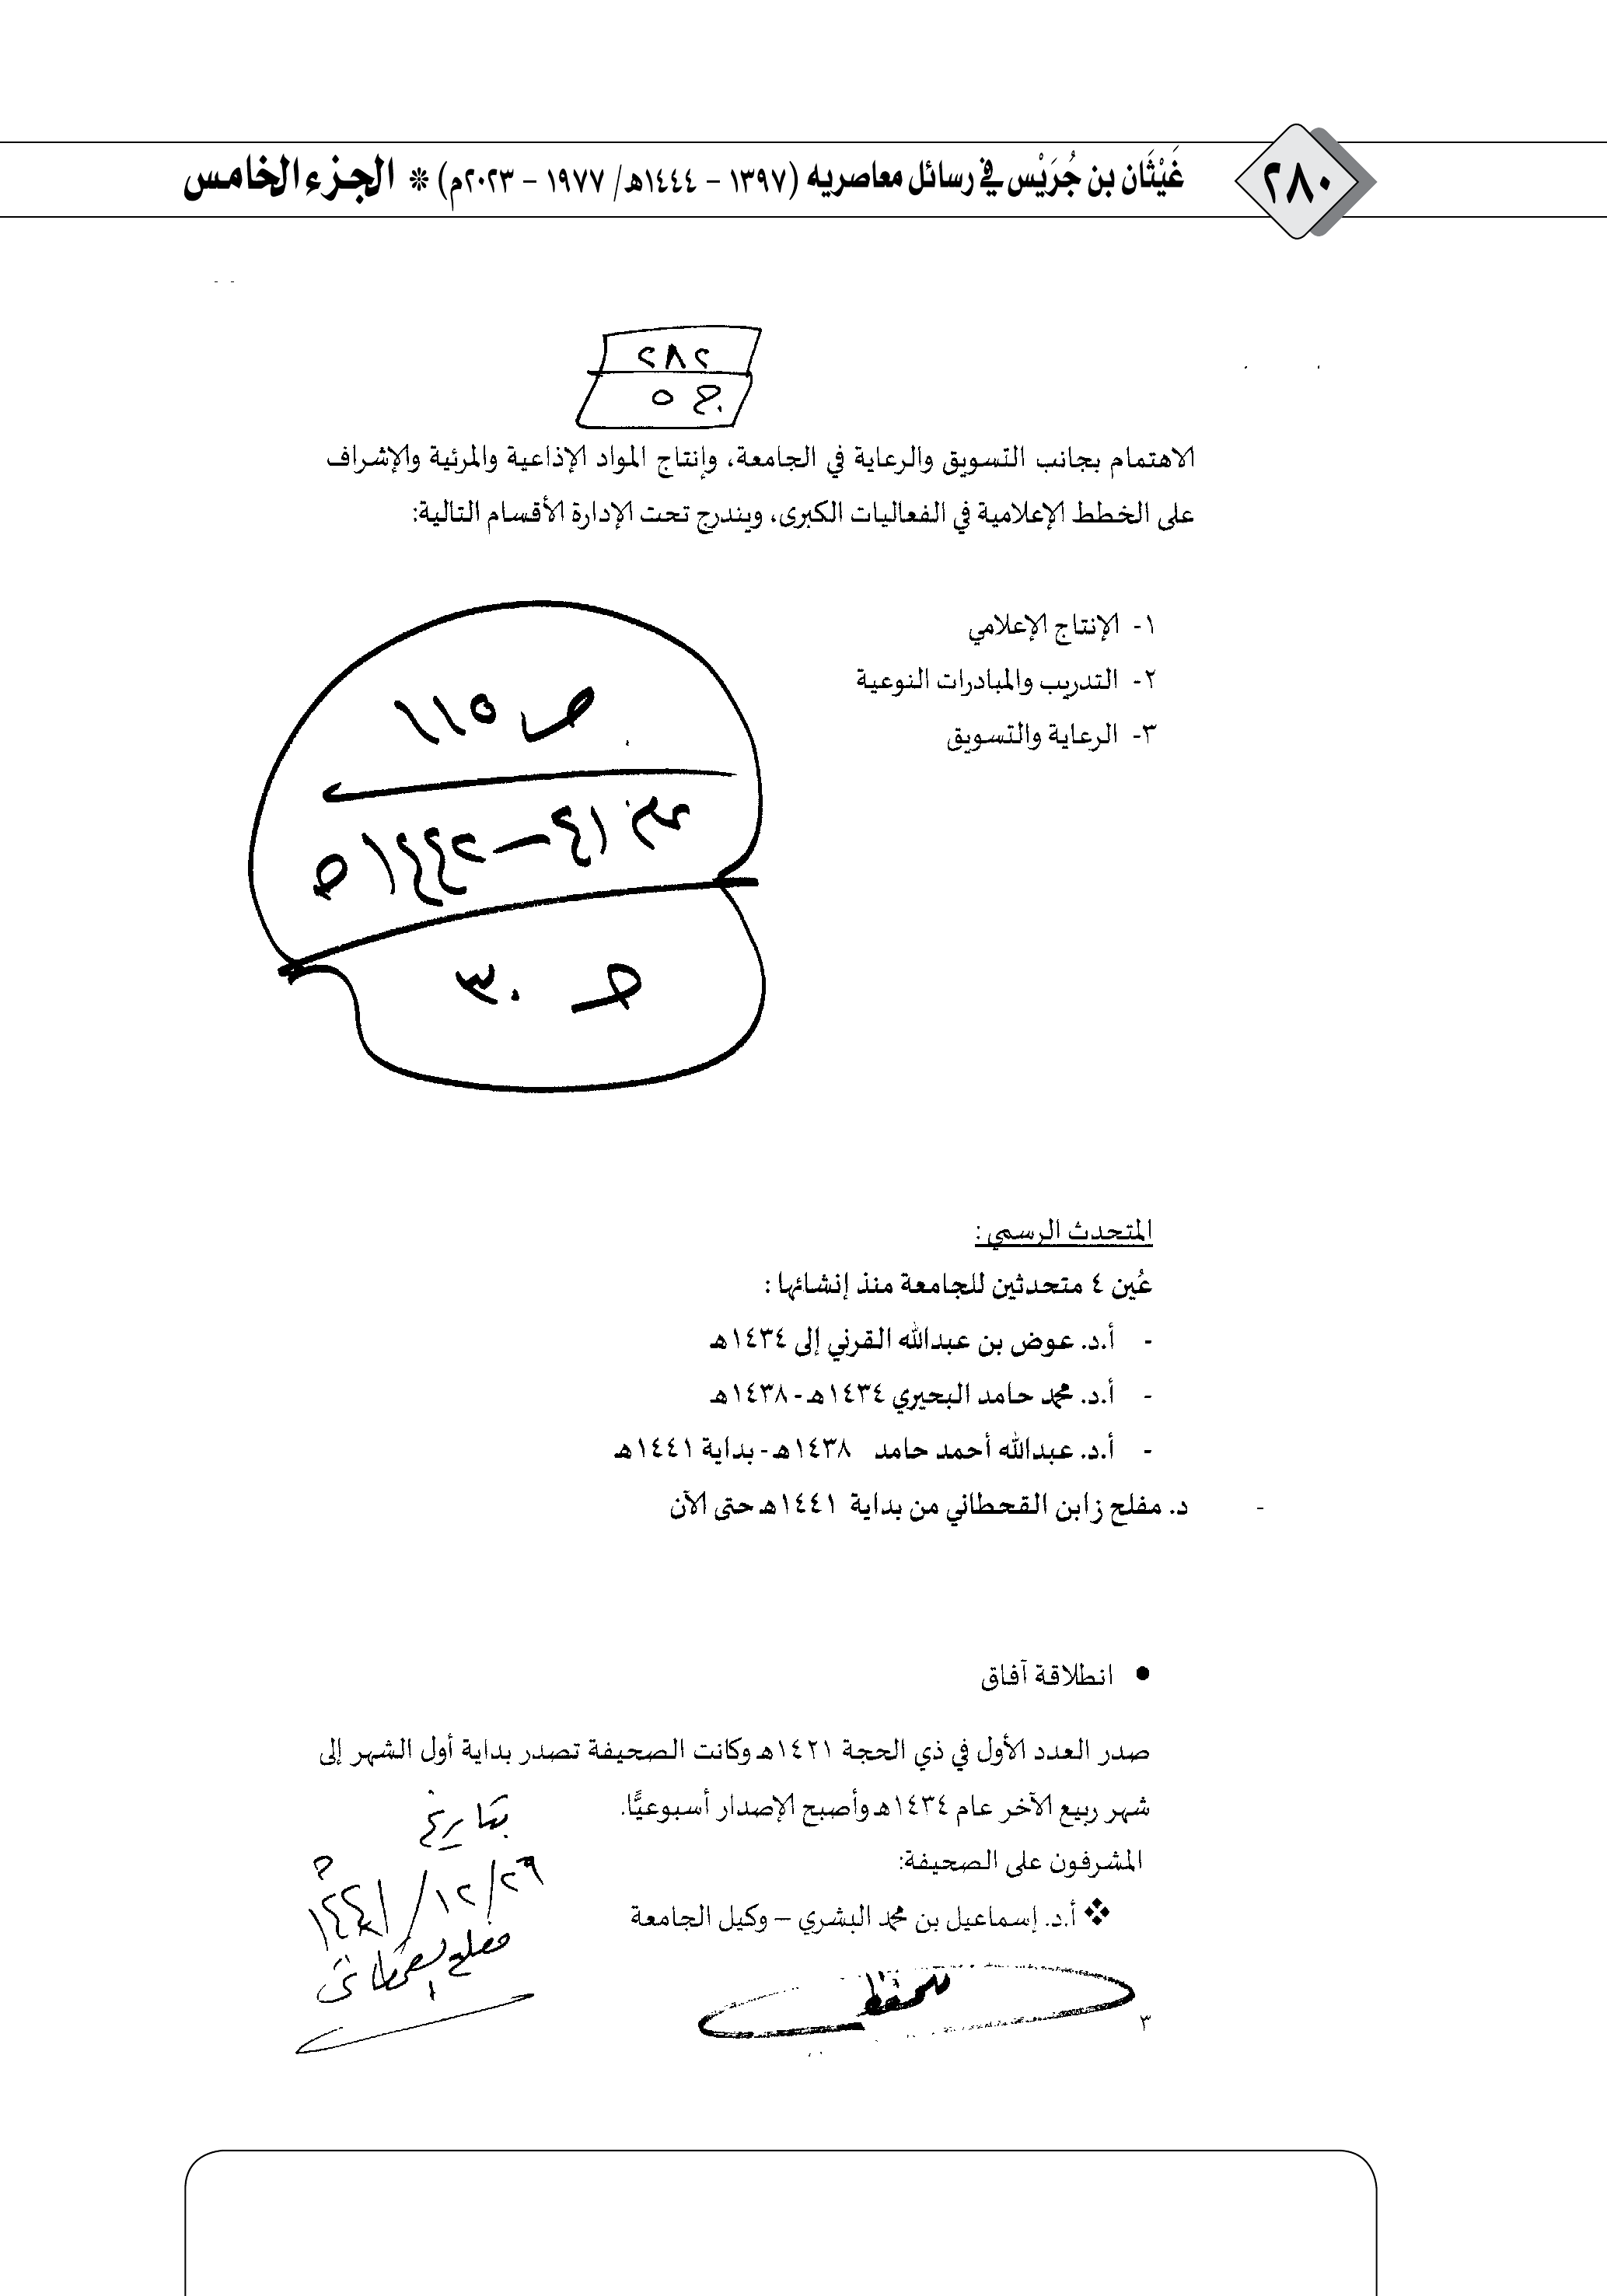 ٢٨٠
غَيْثَان بن جُرَيْس في رسائل معاصريه (١٣٩٧ – ١٤٤٤هـ/ ١٩٧٧ – ٢٠٢٣م) * الجزء الخامس
٢٨٢
ج ٥
الاهتمام بجانب التسويق والرعاية في الجامعة، وإنتاج المواد الإذاعية والمرئية والإشراف
على الخطط الإعلامية في الفعاليات الكبرى، ويندرج تحت الإدارة الأقسام التالية:
١- الإنتاج الإعلامي
٢- التدريب والمبادرات النوعية
٣- الرعاية والتسويق
ص ١١٥
٤١ – ١٤٤٢هـ
ص ٣٠
المتحدث الرسمي :
عُين ٤ متحدثين للجامعة منذ إنشائها :
- أ.د. عوض بن عبدالله القرني إلى ١٤٣٤هـ
- أ.د. محمد حامد البحيري ١٤٣٤هـ - ١٤٣٨هـ
- أ.د. عبدالله أحمد حامد ١٤٣٨هـ - بداية ١٤٤١هـ
- د. مفلح زابن القحطاني من بداية ١٤٤١هـ حتى الآن
• انطلاقة آفاق
صدر العدد الأول في ذي الحجة ١٤٢١هـ وكانت الصحيفة تصدر بداية أول الشهر إلى
شهر ربيع الآخر عام ١٤٣٤هـ وأصبح الإصدار أسبوعيًّا.
المشرفون على الصحيفة:
❖ أ.د. إسماعيل بن محمد البشري – وكيل الجامعة
بتاريخ
٢٩/١٢/١٤٤١هـ
مفلح القحطاني
للحفظ
٣